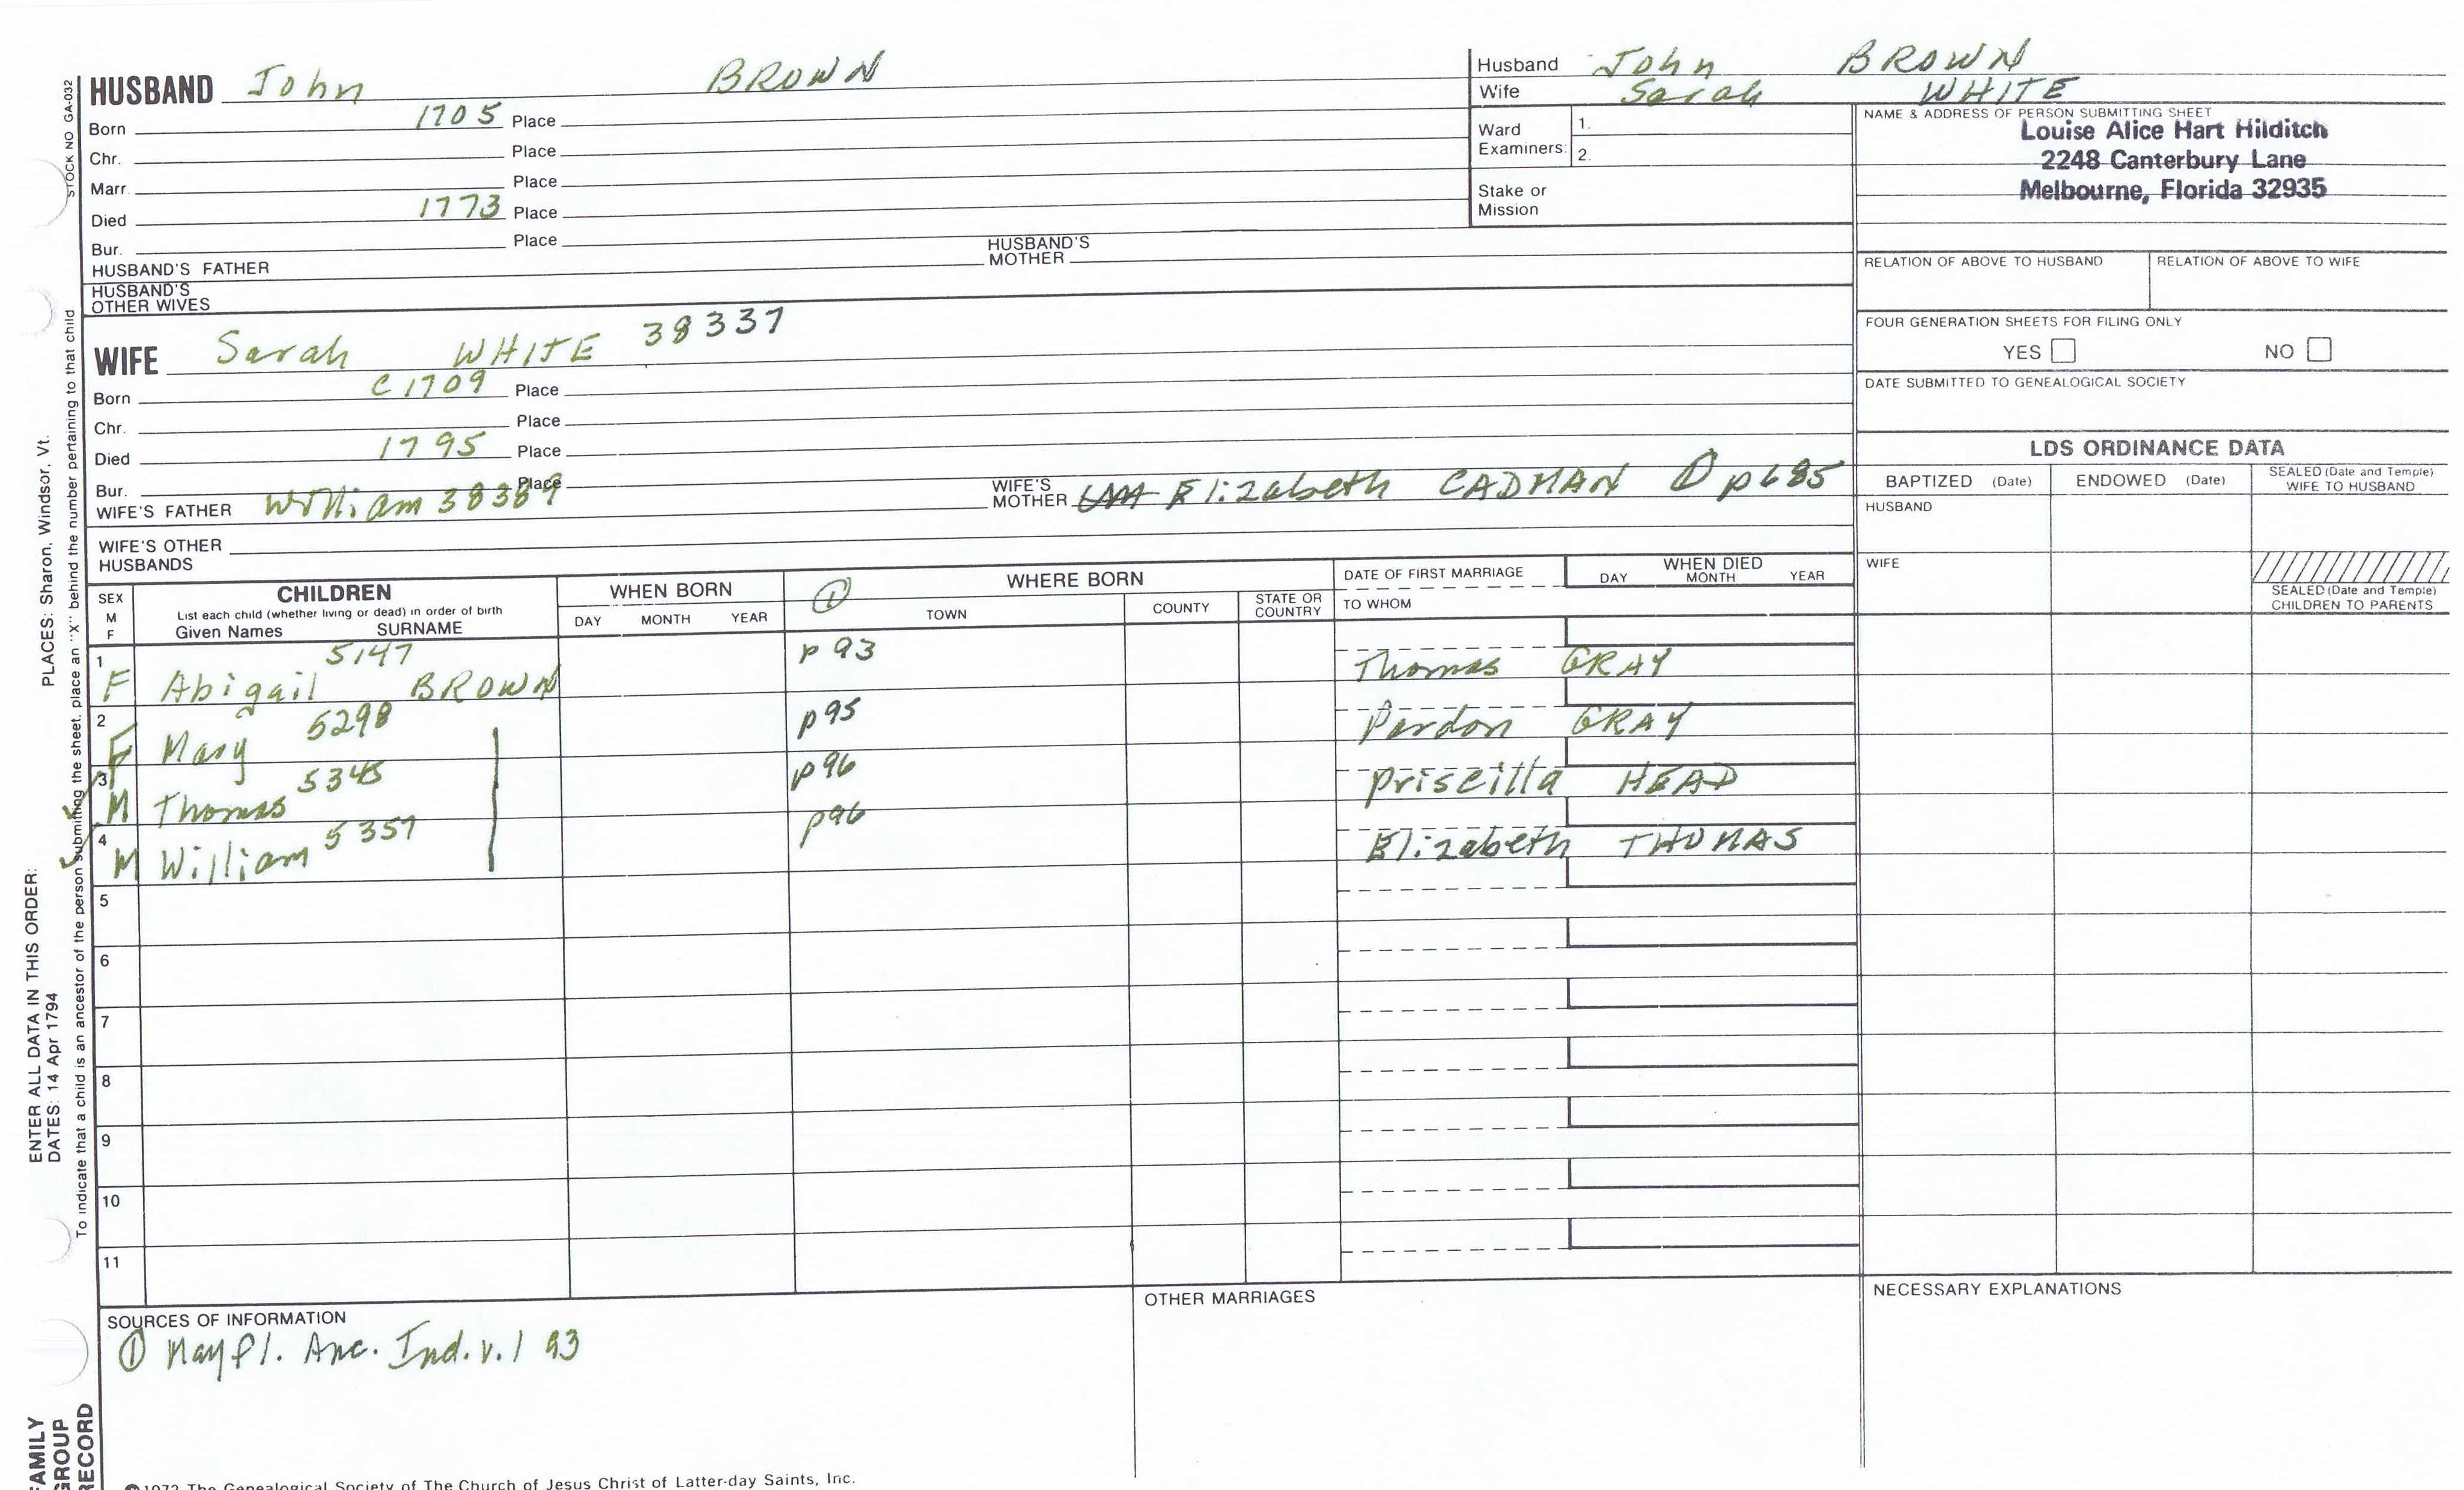 HUSBAND John BROWN
Born 1705 Place
Chr. Place
Marr. Place
Died 1773 Place
Bur. Place
HUSBAND'S FATHER HUSBAND'S MOTHER
HUSBAND'S OTHER WIVES
WIFE Sarah WHITE 38337
Born c 1709 Place
Chr. Place
Died 1795 Place
Bur. Place
WIFE'S FATHER William 38389 WIFE'S MOTHER Elizabeth CADMAN ① p685
WIFE'S OTHER HUSBANDS
Husband John BROWN
Wife Sarah WHITE
Ward Examiners: 1.
2.
Stake or Mission
NAME & ADDRESS OF PERSON SUBMITTING SHEET
Louise Alice Hart Hilditch
2248 Canterbury Lane
Melbourne, Florida 32935
RELATION OF ABOVE TO HUSBAND RELATION OF ABOVE TO WIFE
FOUR GENERATION SHEETS FOR FILING ONLY
YES NO
DATE SUBMITTED TO GENEALOGICAL SOCIETY
LDS ORDINANCE DATA
BAPTIZED (Date) ENDOWED (Date) SEALED (Date and Temple) WIFE TO HUSBAND
HUSBAND
WIFE
SEALED (Date and Temple) CHILDREN TO PARENTS
SEX M F
CHILDREN
List each child (whether living or dead) in order of birth
Given Names SURNAME
WHEN BORN
DAY MONTH YEAR
① WHERE BORN
TOWN COUNTY STATE OR COUNTRY
DATE OF FIRST MARRIAGE
TO WHOM
WHEN DIED
DAY MONTH YEAR
1 F Abigail 5147 BROWN p 93 Thomas GRAY
2 F Mary 5298 p95 Pardon GRAY
3 M Thomas 5345 p96 Priscilla HEAD
4 M William 5357 p96 Elizabeth THOMAS
5
6
7
8
9
10
11
SOURCES OF INFORMATION
① Mayfl. Anc. Ind. v. 1 93
OTHER MARRIAGES
NECESSARY EXPLANATIONS
©1972 The Genealogical Society of The Church of Jesus Christ of Latter-day Saints, Inc.
STOCK NO GA-032
To indicate that a child is an ancestor of the person submitting the sheet, place an "X" behind the number pertaining to that child
PLACES: Sharon, Windsor, Vt.
ENTER ALL DATA IN THIS ORDER:
DATES: 14 Apr 1794
FAMILY
GROUP
RECORD